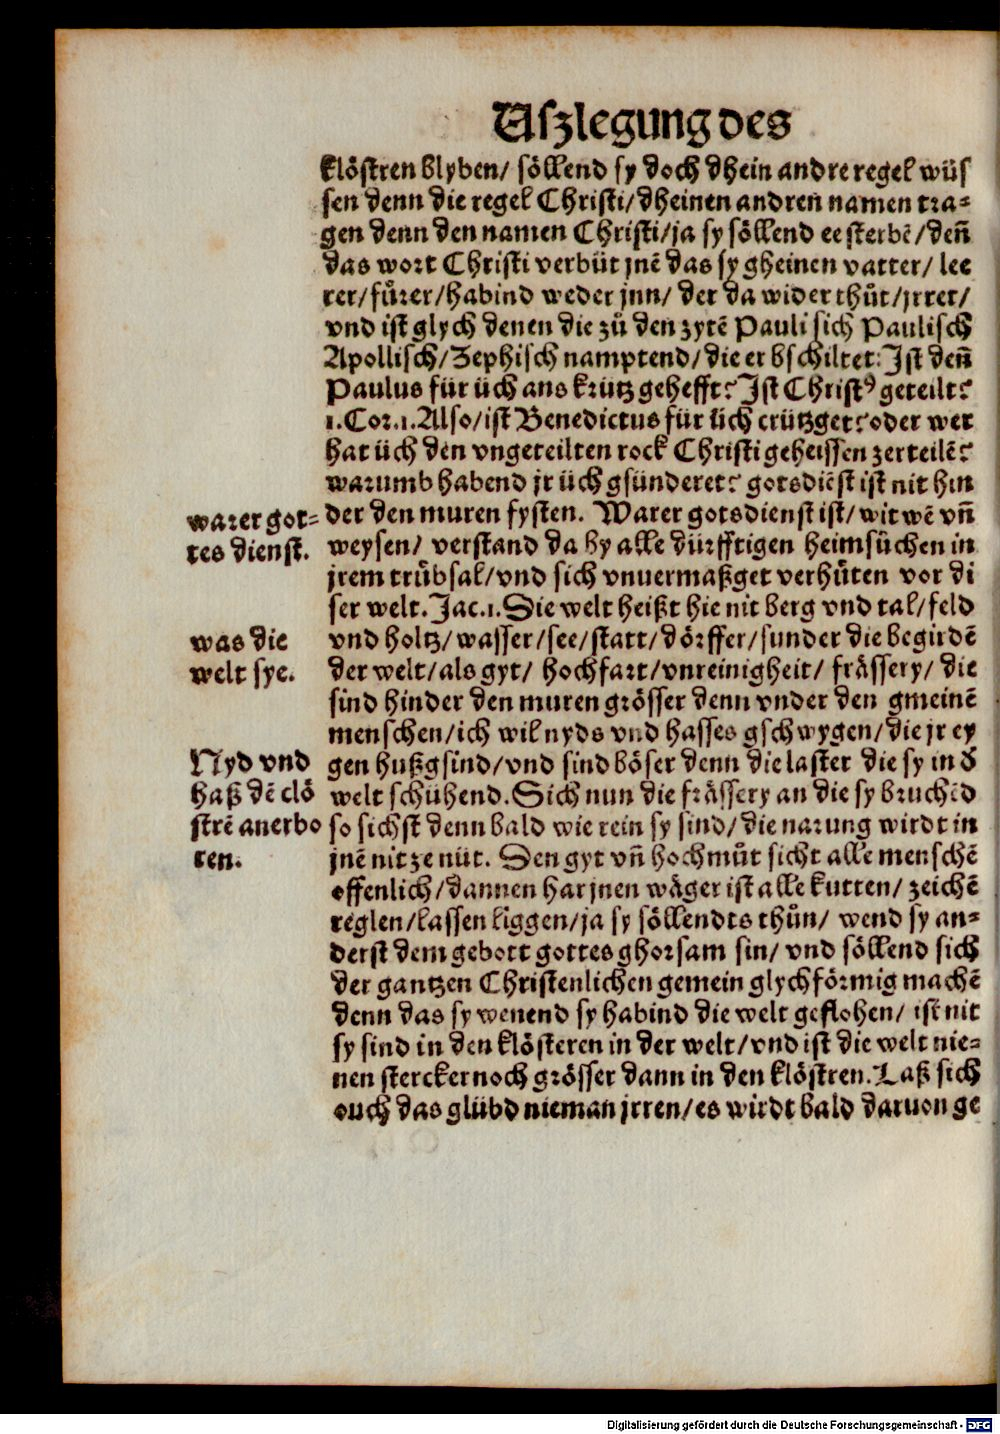 Uſzlegung des
klöſtren blyben/ ſöllend ſy doch dhein andre regel wüſ
ſen denn die regel Chriſti/dheinen andren namen tra⸗
gen denn den namen Chriſti/ja ſy ſöllend ee ſterbē/deñ
das wort Chriſti verbüt jnē das ſy gheinen vatter/ lee
rer/fuͤrer/habind weder jnn/ der da wider thuͦt/jrret/
vnd iſt glych denen die zuͦ den zytē Pauli ſich Pauliſch
Apolliſch/Zephiſch namptend/die er bſchiltet: Jſt deñ
Paulus für üch ans krütz gehefft? Jſt Chriſtꝰ geteilt?
1. Cor. 1. Alſo/iſt Benedictus für üch crützget? oder wer
hat üch den vngeteilten rock Chriſti geheiſſen zerteilē?
warumb habend jr üch gſünderet? gotsdiēſt iſt nit hin
der den muren fyſten. Warer gotsdienſt iſt/ witwē vñ
weyſen/ verſtand da by alle dürfftigen heimſuͤchen in
jrem truͤbſal/vnd ſich vnuermaßget verhuͤten vor di
ſer welt. Jac. 1. Die welt heißt hie nit berg vnd tal/feld
vnd holtz/waſſer/ſee/ſtatt/dörffer/ſunder die begirdē
der welt/als gyt/ hochfart/vnreinigheit/ fräſſery/ die
ſind hinder den muren gröſſer denn vnder den gmeinē
menſchen/ich wil nyds vnd haſſes gſchwygen/die jr ey
gen hußgſind/vnd ſind böſer denn die laſter die ſy in ð
welt ſchühend. Sich nun die fräſſery an die ſy bruchēd
ſo ſichſt denn bald wie rein ſy ſind/die narung wirdt in
jnē nit ze nüt. Den gyt vñ hochmuͦt ſicht alle menſchē
offenlich/dannen har jnen wäger iſt alle kutten/ zeichē
reglen/laſſen liggen/ja ſy ſöllendts thuͦn/ wend ſy an⸗
derſt dem gebott gottes ghorſam ſin/ vnd ſöllend ſich
der gantzen Chriſtenlichen gemein glychförmig machē
denn das ſy wenend ſy habind die welt geflohen/ iſt nit
ſy ſind in den klöſteren in der welt/vnd iſt die welt nie⸗
nen ſtercker noch gröſſer dann in den klöſtren. Laß ſich
ouch das glübd nieman jrren/es wirdt bald daruon ge
warer got⸗
tes dienſt.
was die
welt ſye.
Nyd vnd
haß dē clö
ſtrē anerbo
ren.
Digitalisierung gefördert durch die Deutsche Forschungsgemeinschaft - DFG